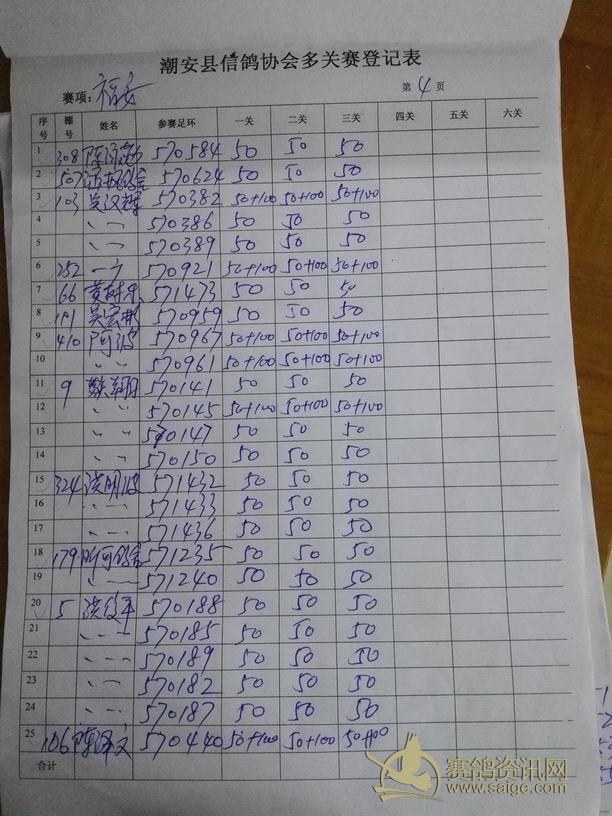 潮安县信鸽协会多关赛登记表
赛项：福安 第 4 页
序号 棚号 姓名 参赛足环 一关 二关 三关 四关 五关 六关
1 308 570584 50 50 50
2 507 570624 50 50 50
3 103 吴汉辉 570382 50+100 50+100 50+100
4 〃 570386 50 50 50
5 〃 570389 50 50 50
6 252 一方 570921 50+100 50+100 50+100
7 66 黄树 571473 50 50 50
8 191 吴宏 570959 50 50 50
9 410 阿鸿 570967 50+100 50+100 50+100
10 〃 570961 50+100 50+100 50+100
11 9 570141 50 50 50
12 〃 570145 50+100 50+100 50+100
13 〃 570147 50 50 50
14 〃 570150 50 50 50
15 324 洪明 571432 50 50 50
16 〃 571433 50 50 50
17 〃 571436 50 50 50
18 179 571235 50 50 50
19 〃 571240 50 50 50
20 5 洪俊平 570188 50 50 50
21 〃 570185 50 50 50
22 〃 570189 50 50 50
23 〃 570182 50 50 50
24 〃 570187 50 50 50
25 106 陈泽文 570440 50+100 50+100 50+100
合计
赛鸽资讯网
www.saige.com